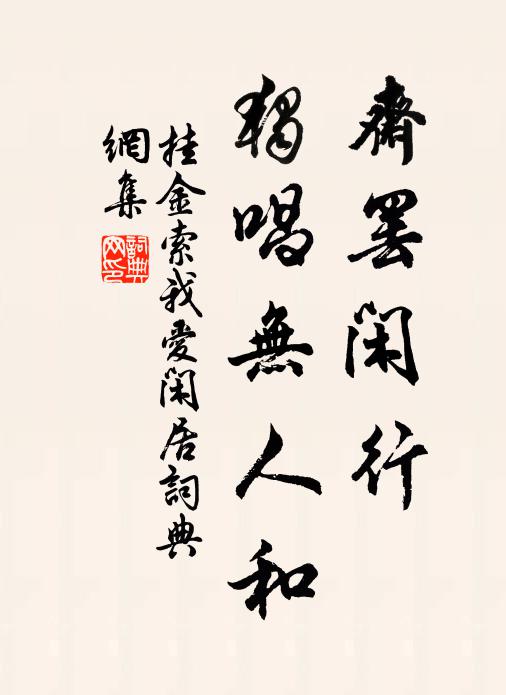 齋罷閑行
獨唱無人和
挂金索我愛閑居詞典
網集
詞典
网印